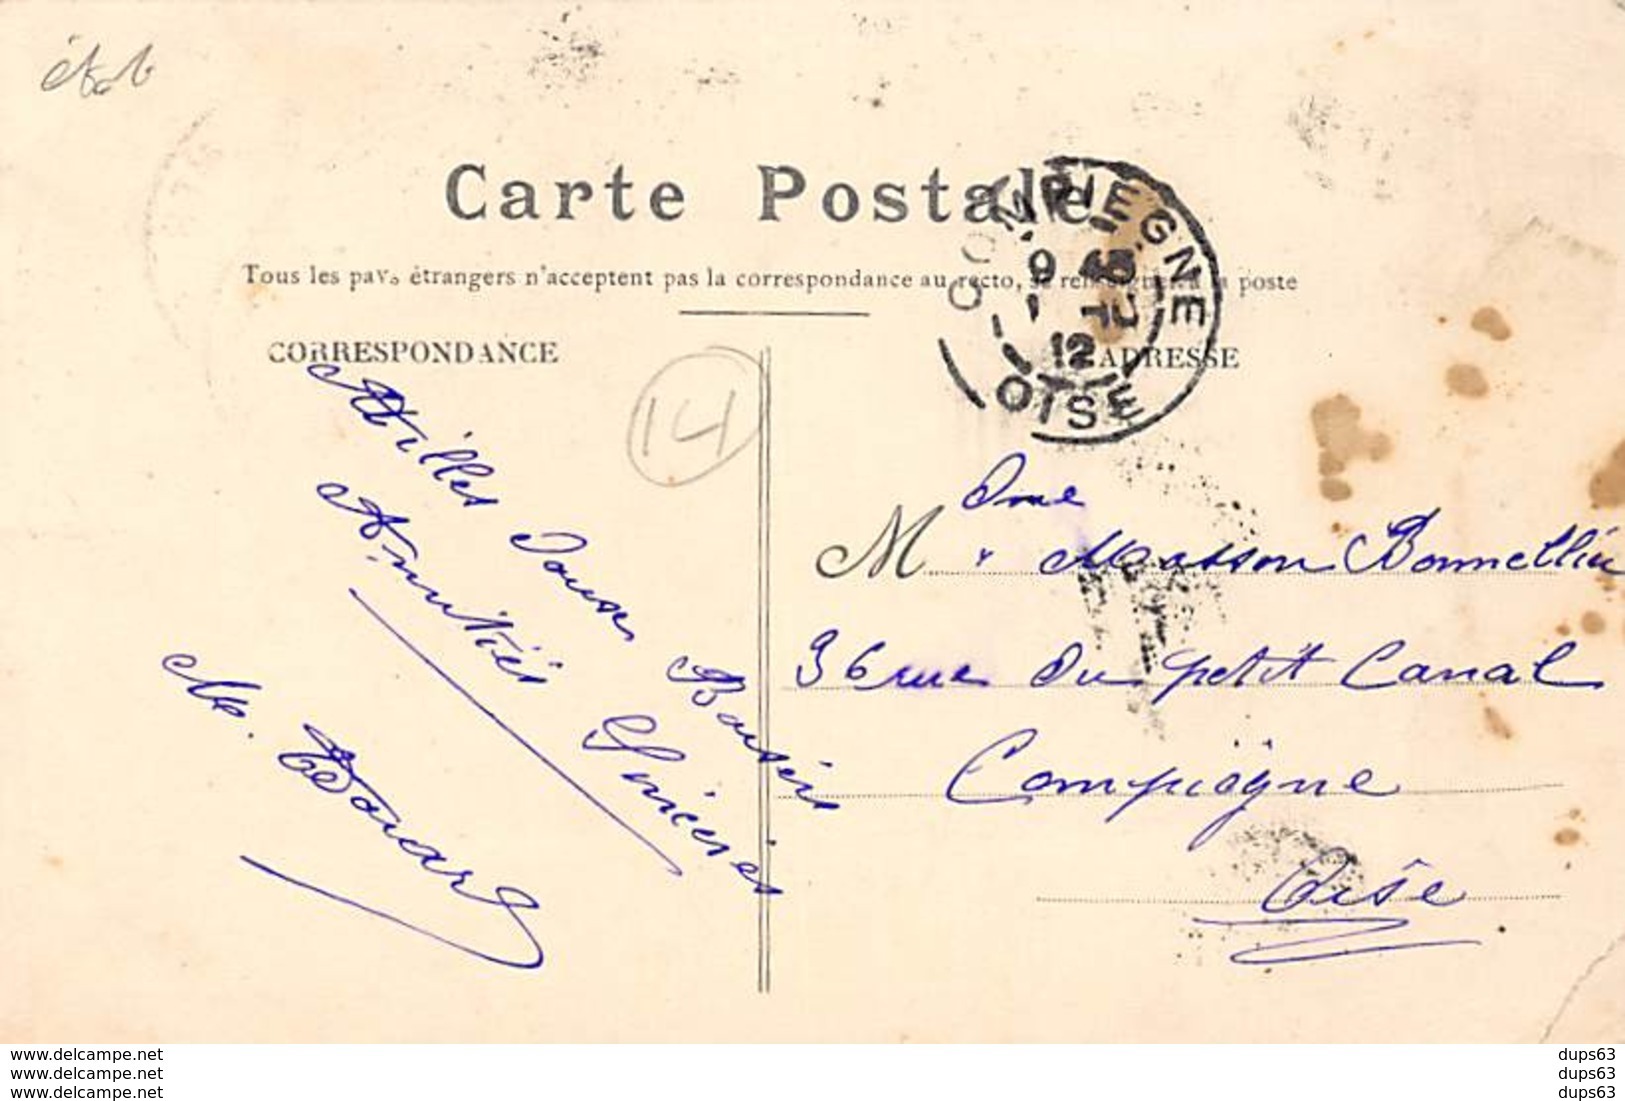 Carte Postale
Tous les pays étrangers n'acceptent pas la correspondance au recto, se renseigner à la poste
CORRESPONDANCE
ADRESSE
COMPIEGNE
9
12
OISE
14
Milles Doux Baisers
Amitiés Sincères
M. Edouard
M me Masson
36 rue du petit Canal
Compiègne
Oise
www.delcampe.net
www.delcampe.net
www.delcampe.net
dups63
dups63
dups63